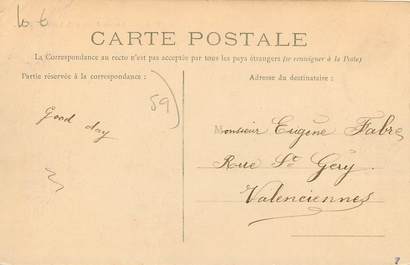 10 €
CARTE POSTALE
La Correspondance au recto n'est pas acceptée par tous les pays étrangers (se renseigner à la Poste)
Partie réservée à la correspondance :
Adresse du destinataire :
59
Good day
Monsieur Eugène Fabre
Rue St Géry
Valenciennes